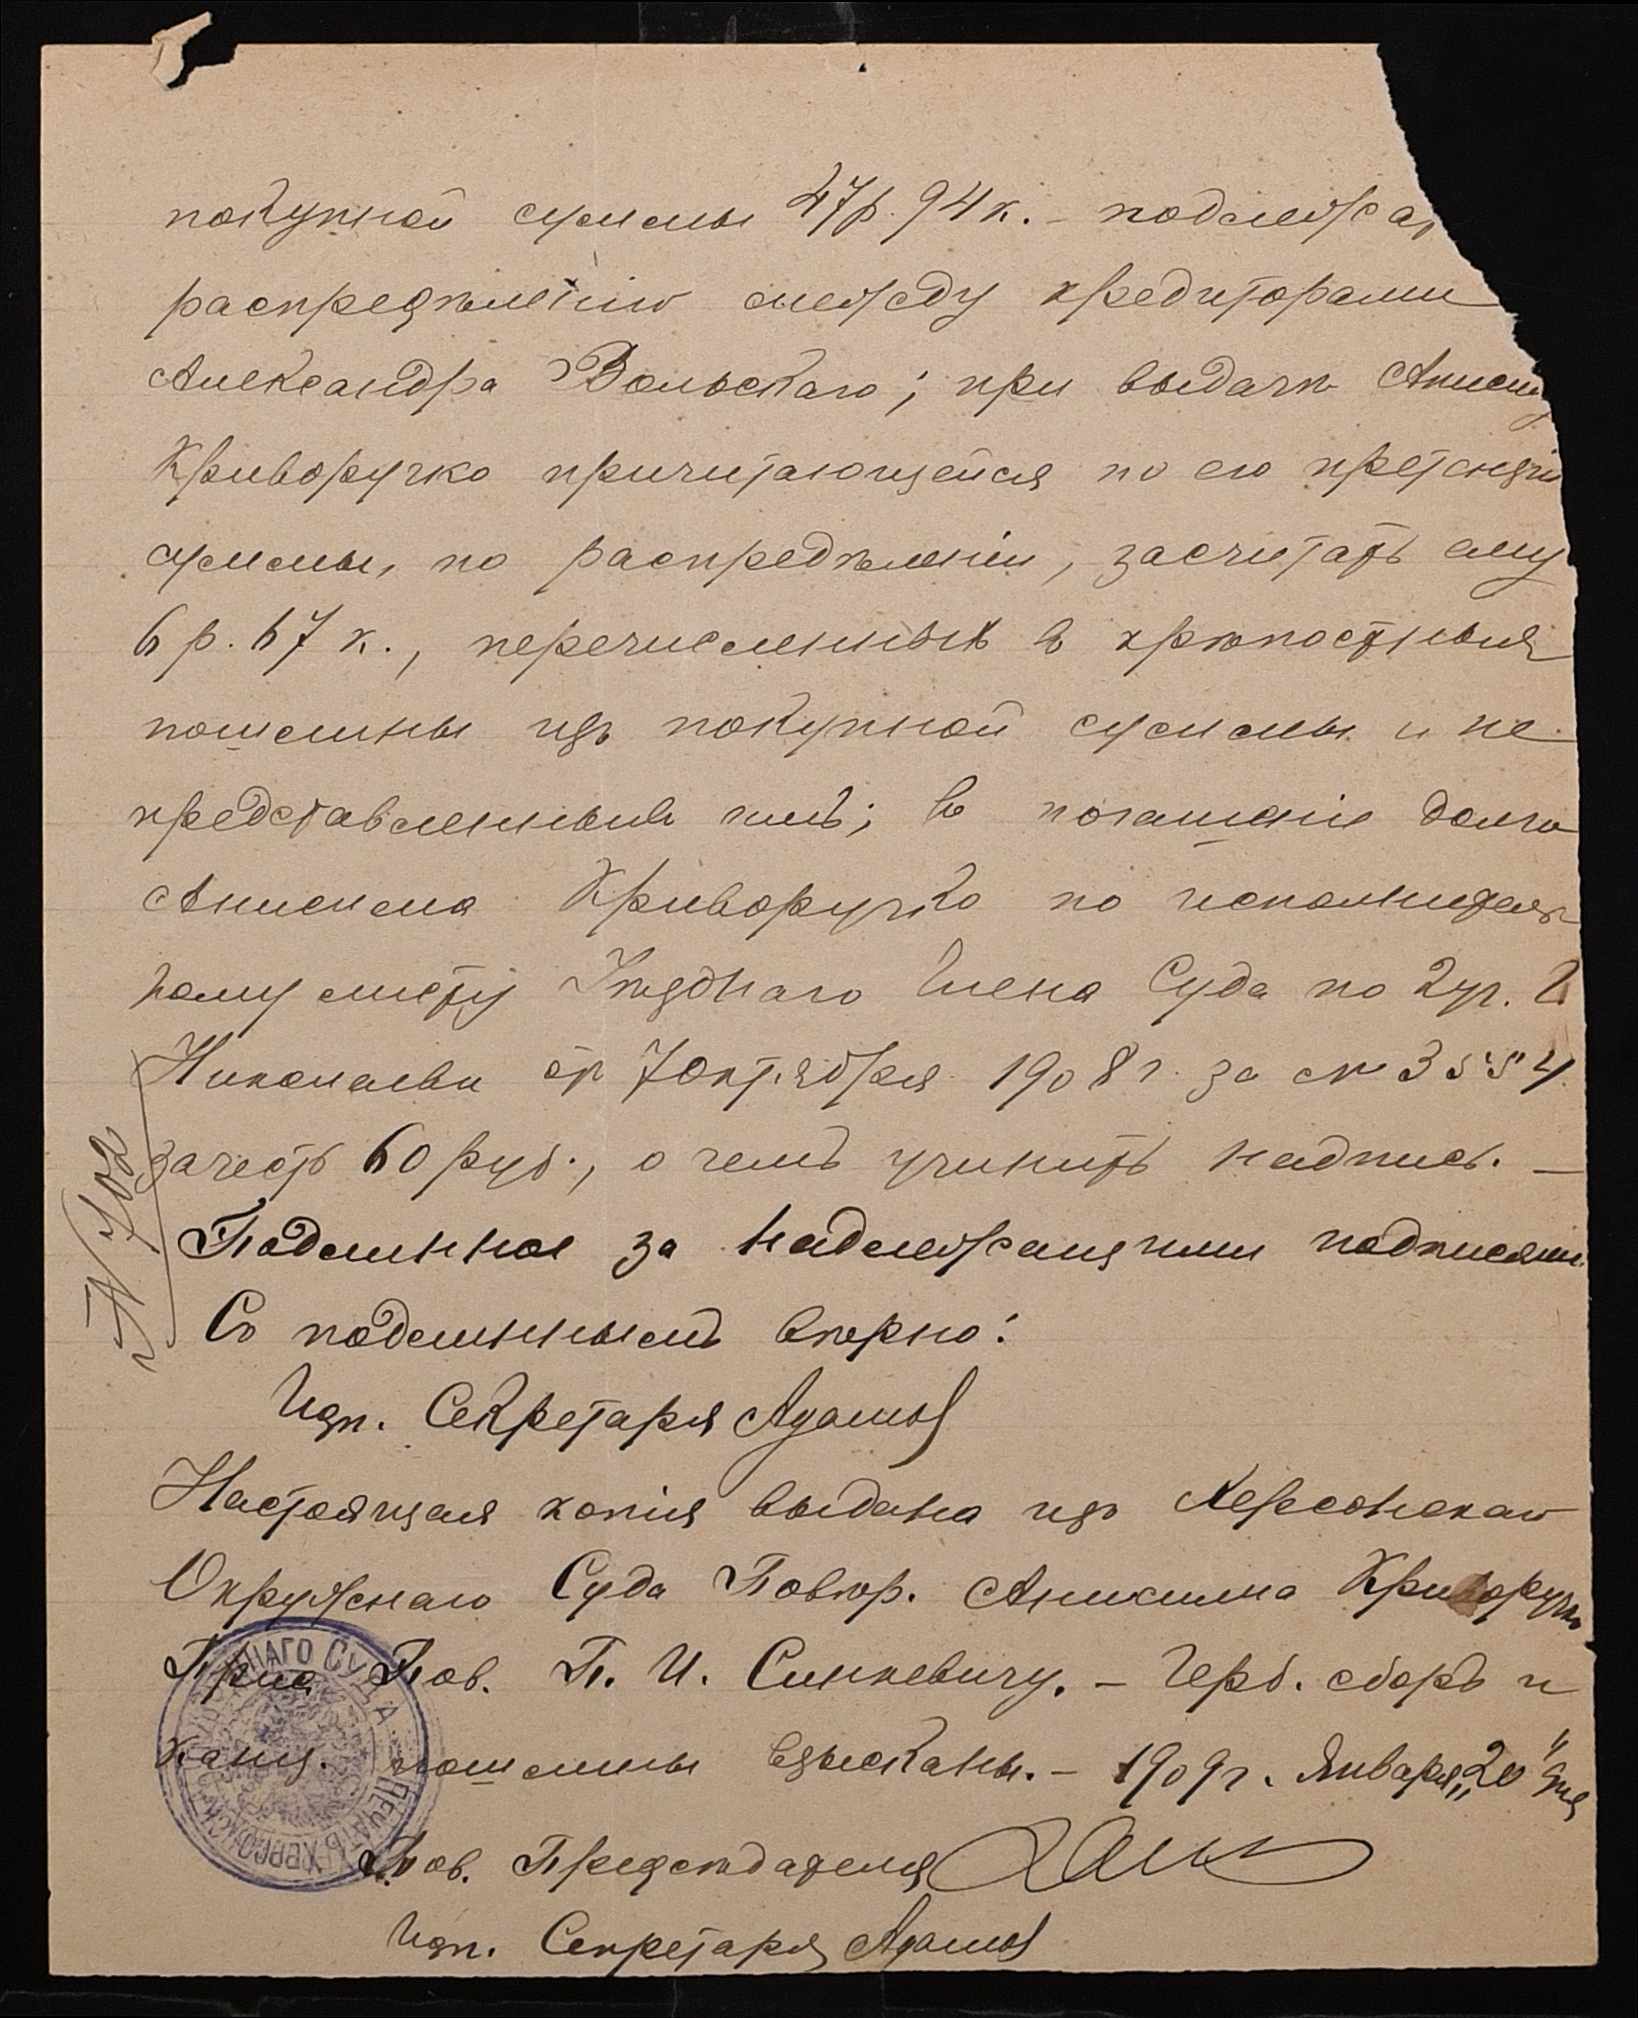 покупной суммы 47 р. 94 к. – подлежа
распредѣленію между кредиторами
Александра Вольскаго; при выдачѣ Аниси
Криворучко причитающейся по его претензіи
суммы, по распредѣленіи, засчитать ему
6 р. 67 к., перечисленныхъ въ крѣпостныя
пошлины изъ покупной суммы и не
представленныхъ имъ; въ погашеніе долга
Анисима Криворучко по исполнитель
ному листу Уѣзднаго Члена Суда по 2 уч. г.
Николаева отъ 7 Октября 1908 г. за № 3554
зачесть 60 руб., о чемъ учинить надпись. —
Подлинное за надлежащими подписями.
Съ подлиннымъ вѣрно:
И. д. п. Секретаря
№ 702
Настоящая копія выдана изъ Херсонскаго
Окружнаго Суда Повѣр. Анисима Криворучко
Прис. Пов. П. И. Синкевичу. – Герб. сборъ и
канц. пошлины взысканы. – 1909 г. Января „20" дня
Тов. Предсѣдателя
И. д. п. Секретаря
ПЕЧАТЬ ХЕРСОНСК. ОКРУЖНАГО СУДА